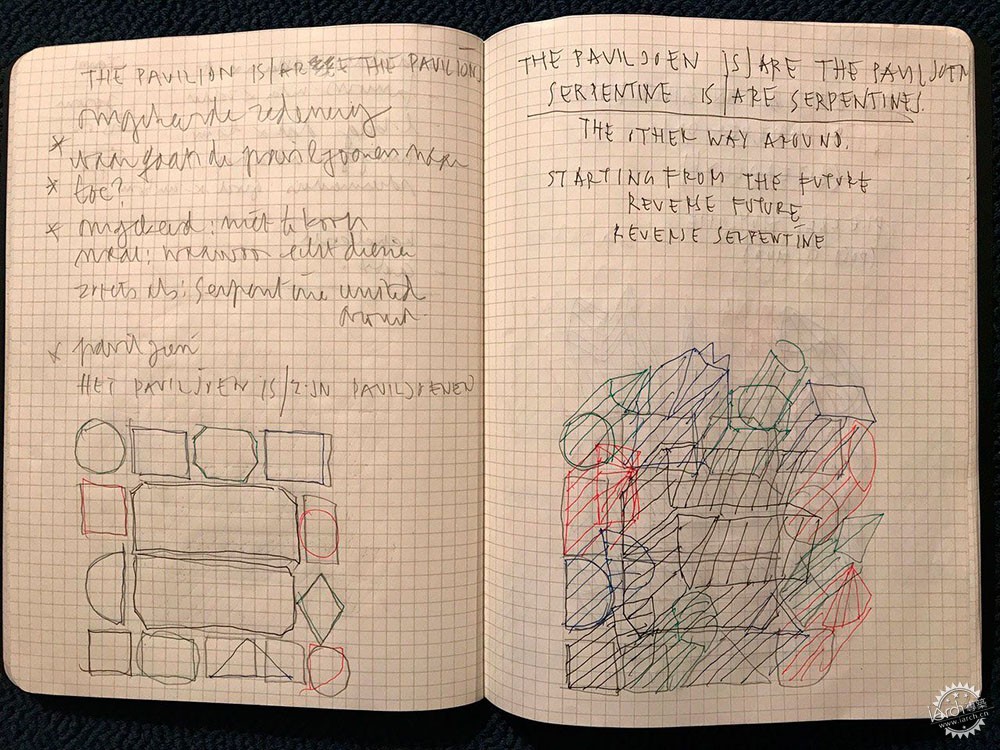 THE PAVILION IS/ARE THE PAVILIONS
omgekeerde redenering
* waar gaan de paviljoenen naar
* toe?
* omgekeerd: niet te koop
maar: waarvoor echt dienen
zoiets als: serpentine united
* paviljoen
HET PAVILJOEN IS/ZIJN PAVILJOENEN
THE PAVILJOEN IS/ARE THE PAVILJOEN
SERPENTINE IS/ARE SERPENTINES.
THE OTHER WAY AROUND.
STARTING FROM THE FUTURE
REVERSE FUTURE
REVERSE SERPENTINE
iarch 專築
www.iarch.cn